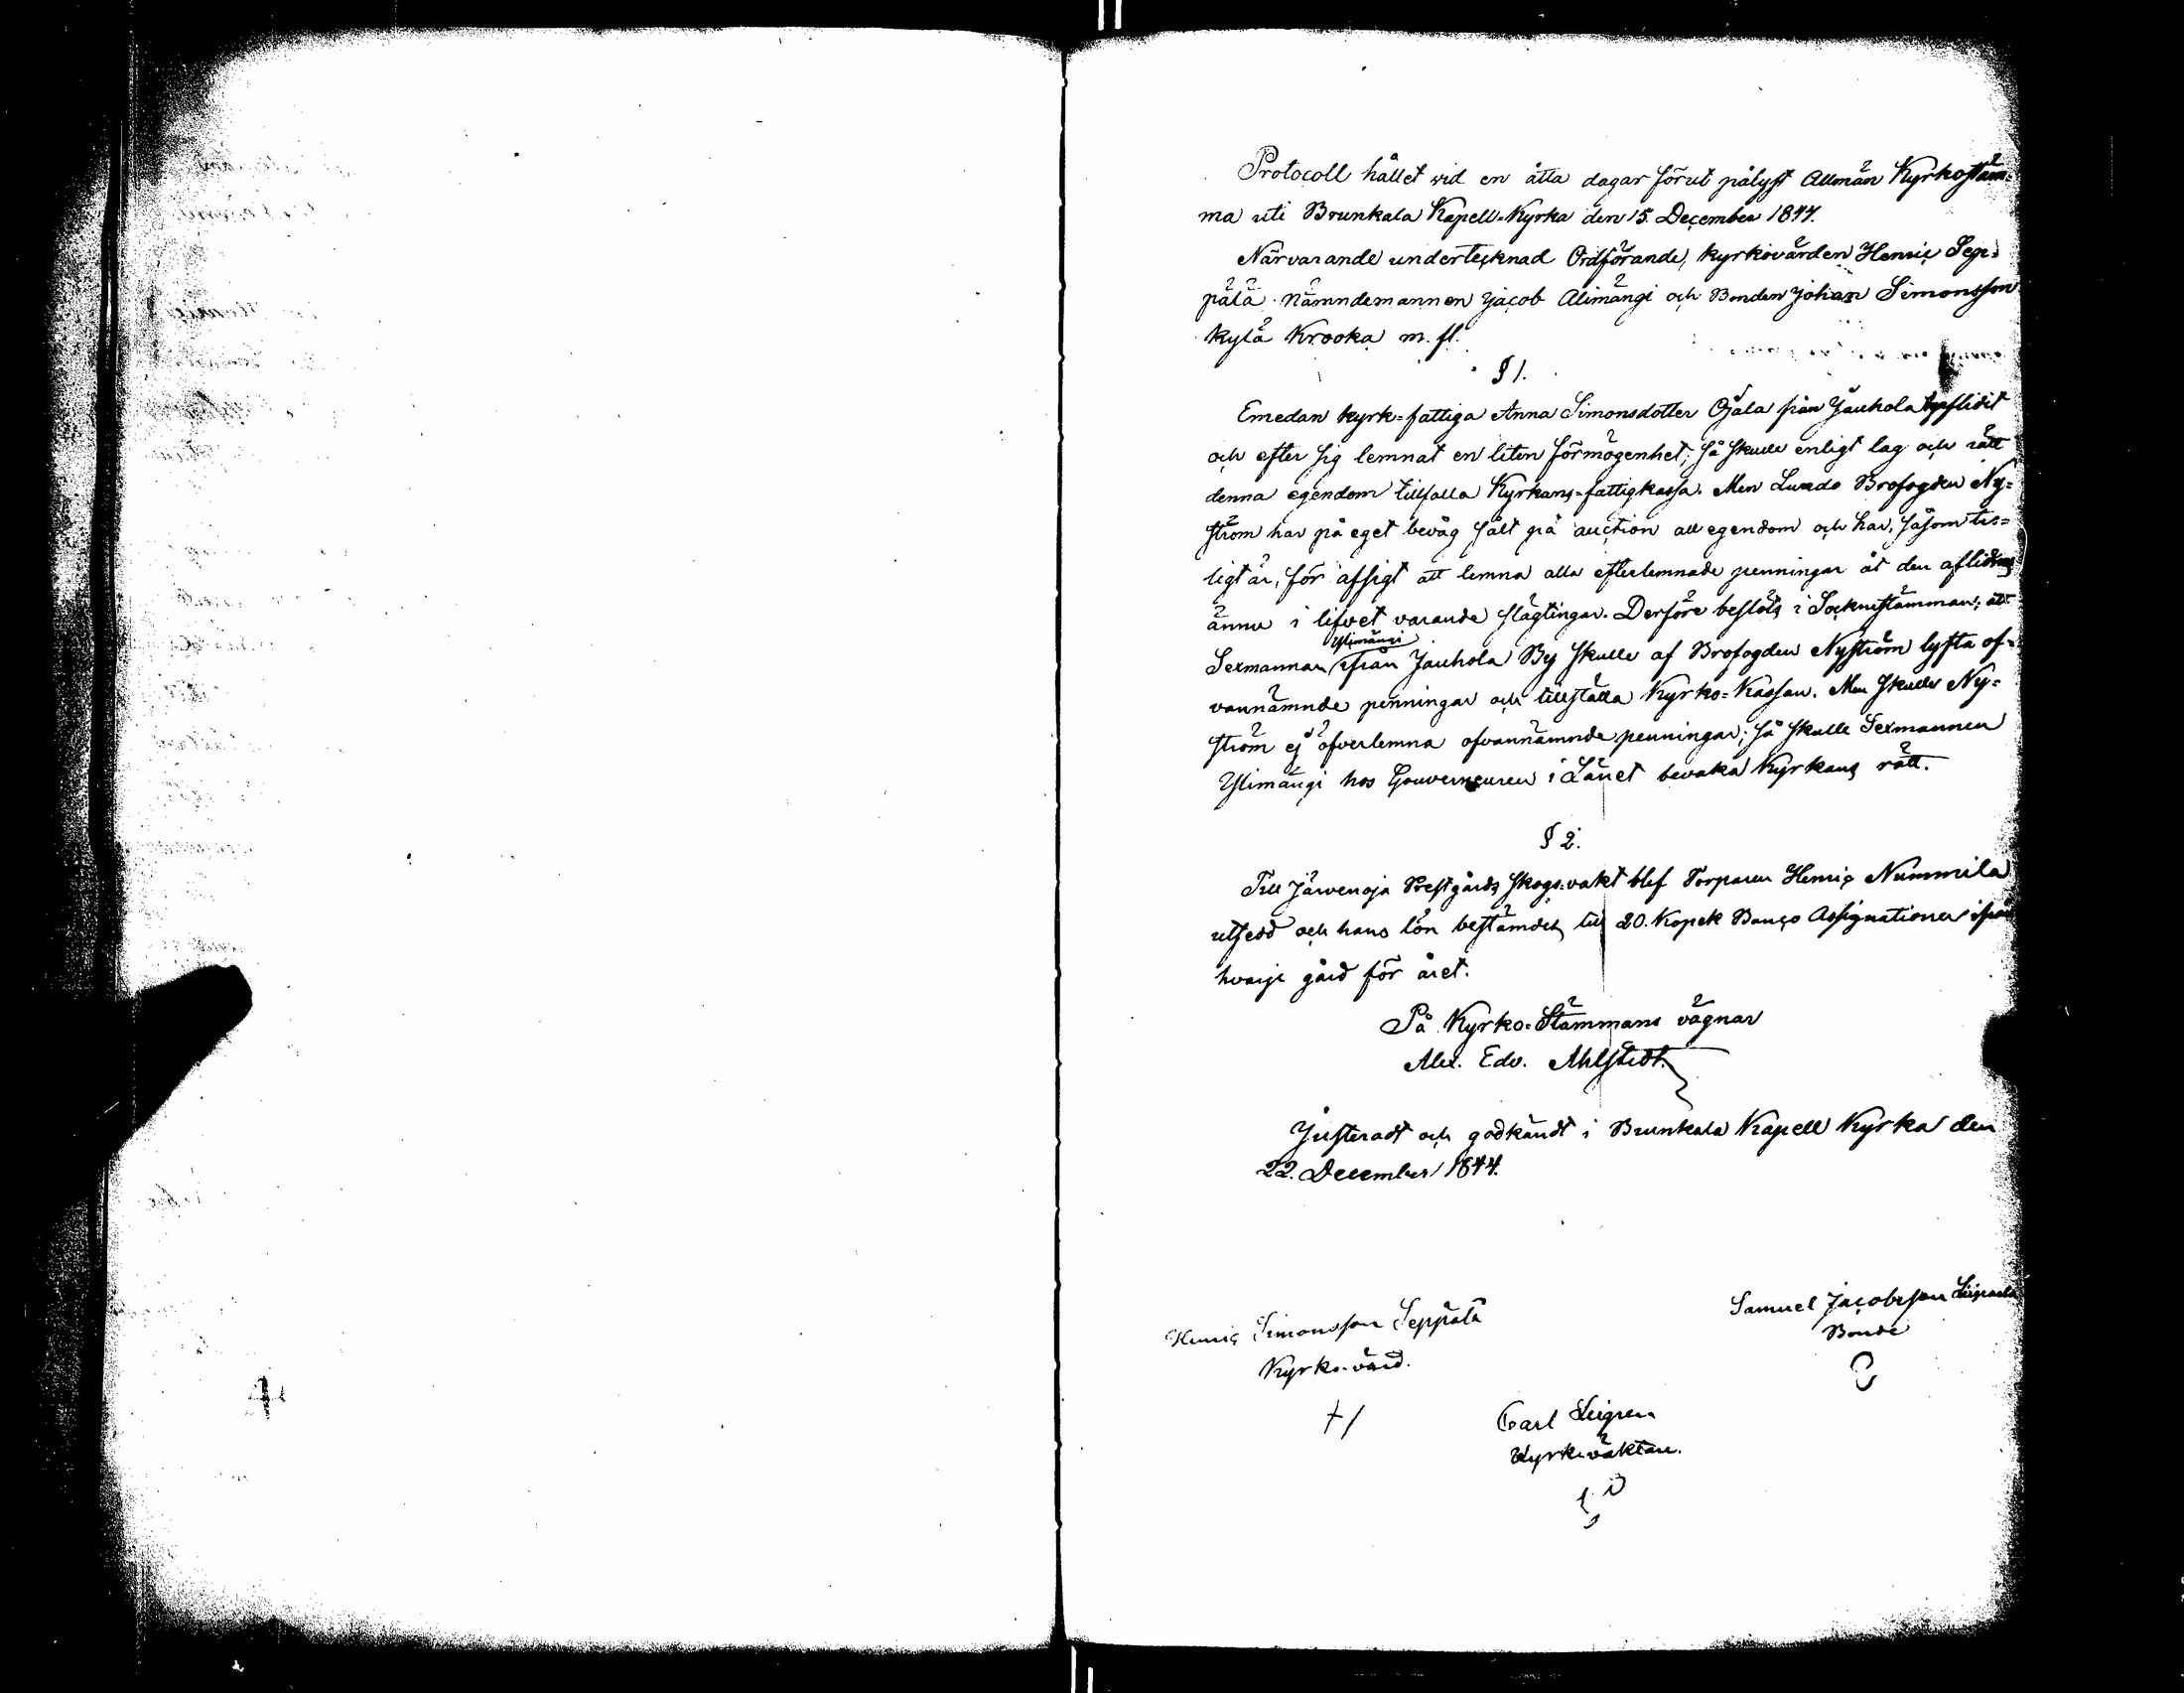 Protocoll hållet vid en åtta dagar förut pålyst Allmän Kyrkostäm-
ma uti Brunkala Kapell-Kyrka den 15. December 1844.
Närvarande undertecknad Ordförande, kyrkovärden Henric Sep-
pälä Nämndemannen Jacob Alimängi och Bonden Johan Simonsson
Kylä Krooka m. fl.
§ 1.
Emedan kyrk=fattiga Anna Simonsdotter Ojala från Jauhola aflidit
och efter sig lemnat en liten förmögenhet; så skulle enligt lag och rätt
denna egendom tillfalla Kyrkans=fattigkassa. Men Brofogden Ny=
ström har på eget bevåg sålt på auction all egendom och har, såsom tro=
ligt är, för afsigt att lemna alla efterlemnade penningar åt den aflidnes
ännu i lifvet varande slägtingar. Derföre beslöts i Sockenstämman; att
Ylimängi
Sexmannen ifrån Jauhola By skulle af Brofogden Nyström lyfta of=
vannämnde penningar och tillställa Kyrko=Kassan. Men skulle Ny=
ström ej öfverlemna ofvannämnde penningar; så skulle Sexmannen
Ylimängi hos Gouverneuren i Länet bevaka Kyrkans rätt.
§ 2.
Till Järvenoja Prestgårds skogs-vakt blef Torparen Henric Nummila
utsedd och hans lön bestämdes till 20. Kopek Banco Assignationer ifrån
hvarje gård för året.
På Kyrko=Stämmans vägnar
Alex. Edv. Ahlstedt.
Justeradt och godkändt i Brunkala Kapell Kyrka den
22. December 1844.
Samuel Jacobsson
Henric Simonsson Seppälä
Bonde
Kyrko-värd.
Carl
Kyrkoväktare.